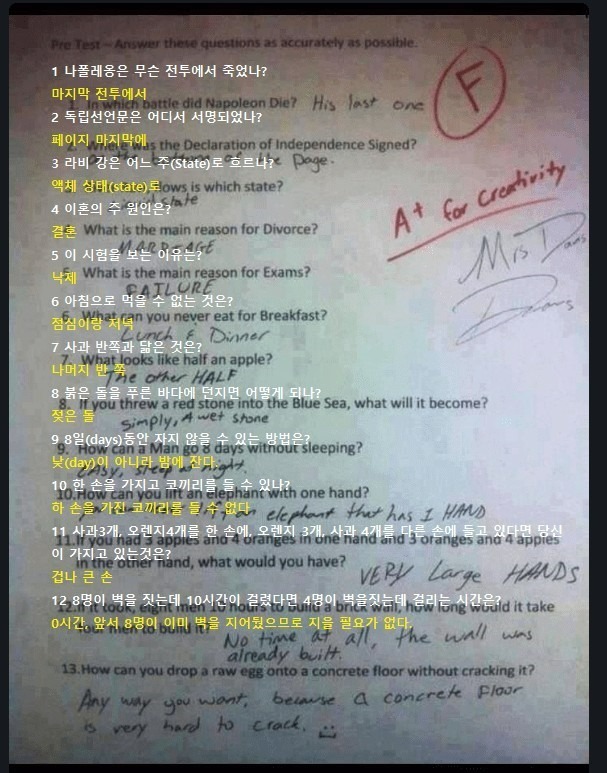 Pre Test – Answer these questions as accurately as possible.
F
1 나폴레옹은 무슨 전투에서 죽었나?
마지막 전투에서
1. In which battle did Napoleon Die? His last one
2 독립선언문은 어디서 서명되었나?
2. Where was the Declaration of Independence Signed?
페이지 마지막에
the Page.
3 라비 강은 어느 주(State)로 흐르나?
액체 상태(state)로
flows is which state?
state
A+ for Creativity
4 이혼의 주 원인은?
What is the main reason for Divorce?
결혼
MARRIAGE
Mrs Davis
5 이 시험을 보는 이유는?
5. What is the main reason for Exams?
낙제
FAILURE
6 아침으로 먹을 수 없는 것은?
6. What can you never eat for Breakfast?
점심이랑 저녁
Lunch & Dinner
7 사과 반쪽과 닮은 것은?
7. What looks like half an apple?
나머지 반 쪽
The other HALF
8 붉은 돌을 푸른 바다에 던지면 어떻게 되나?
8. If you threw a red stone into the Blue Sea, what will it become?
젖은 돌
simply, A wet stone
9 8일(days)동안 자지 않을 수 있는 방법은?
9. How can a Man go 8 days without sleeping?
낮(day)이 아니라 밤에 잔다.
EASY, sleep at night.
10 한 손을 가지고 코끼리를 들 수 있나?
10.How can you lift an elephant with one hand?
하 손을 가진 코끼리를 들 수 없다
an elephant that has 1 HAND
11 사과3개, 오렌지4개를 한 손에, 오렌지 3개, 사과 4개를 다른 손에 들고 있다면 당신
11.If you had 3 apples and 4 oranges in one hand and 3 oranges and 4 apples
이 가지고 있는것은?
in the other hand, what would you have?
겁나 큰 손
VERY Large HANDS
12 8명이 벽을 짓는데 10시간이 걸렸다면 4명이 벽을짓는데 걸리는 시간은?
12.If it took, eight men 10 hours to build a brick wall, how long would it take
0시간, 앞서 8명이 이미 벽을 지어뒀으므로 지을 필요가 없다.
four men to build it?
No time at all, the wall was
already built.
13.How can you drop a raw egg onto a concrete floor without cracking it?
Any way you want, because a concrete floor
is very hard to crack.